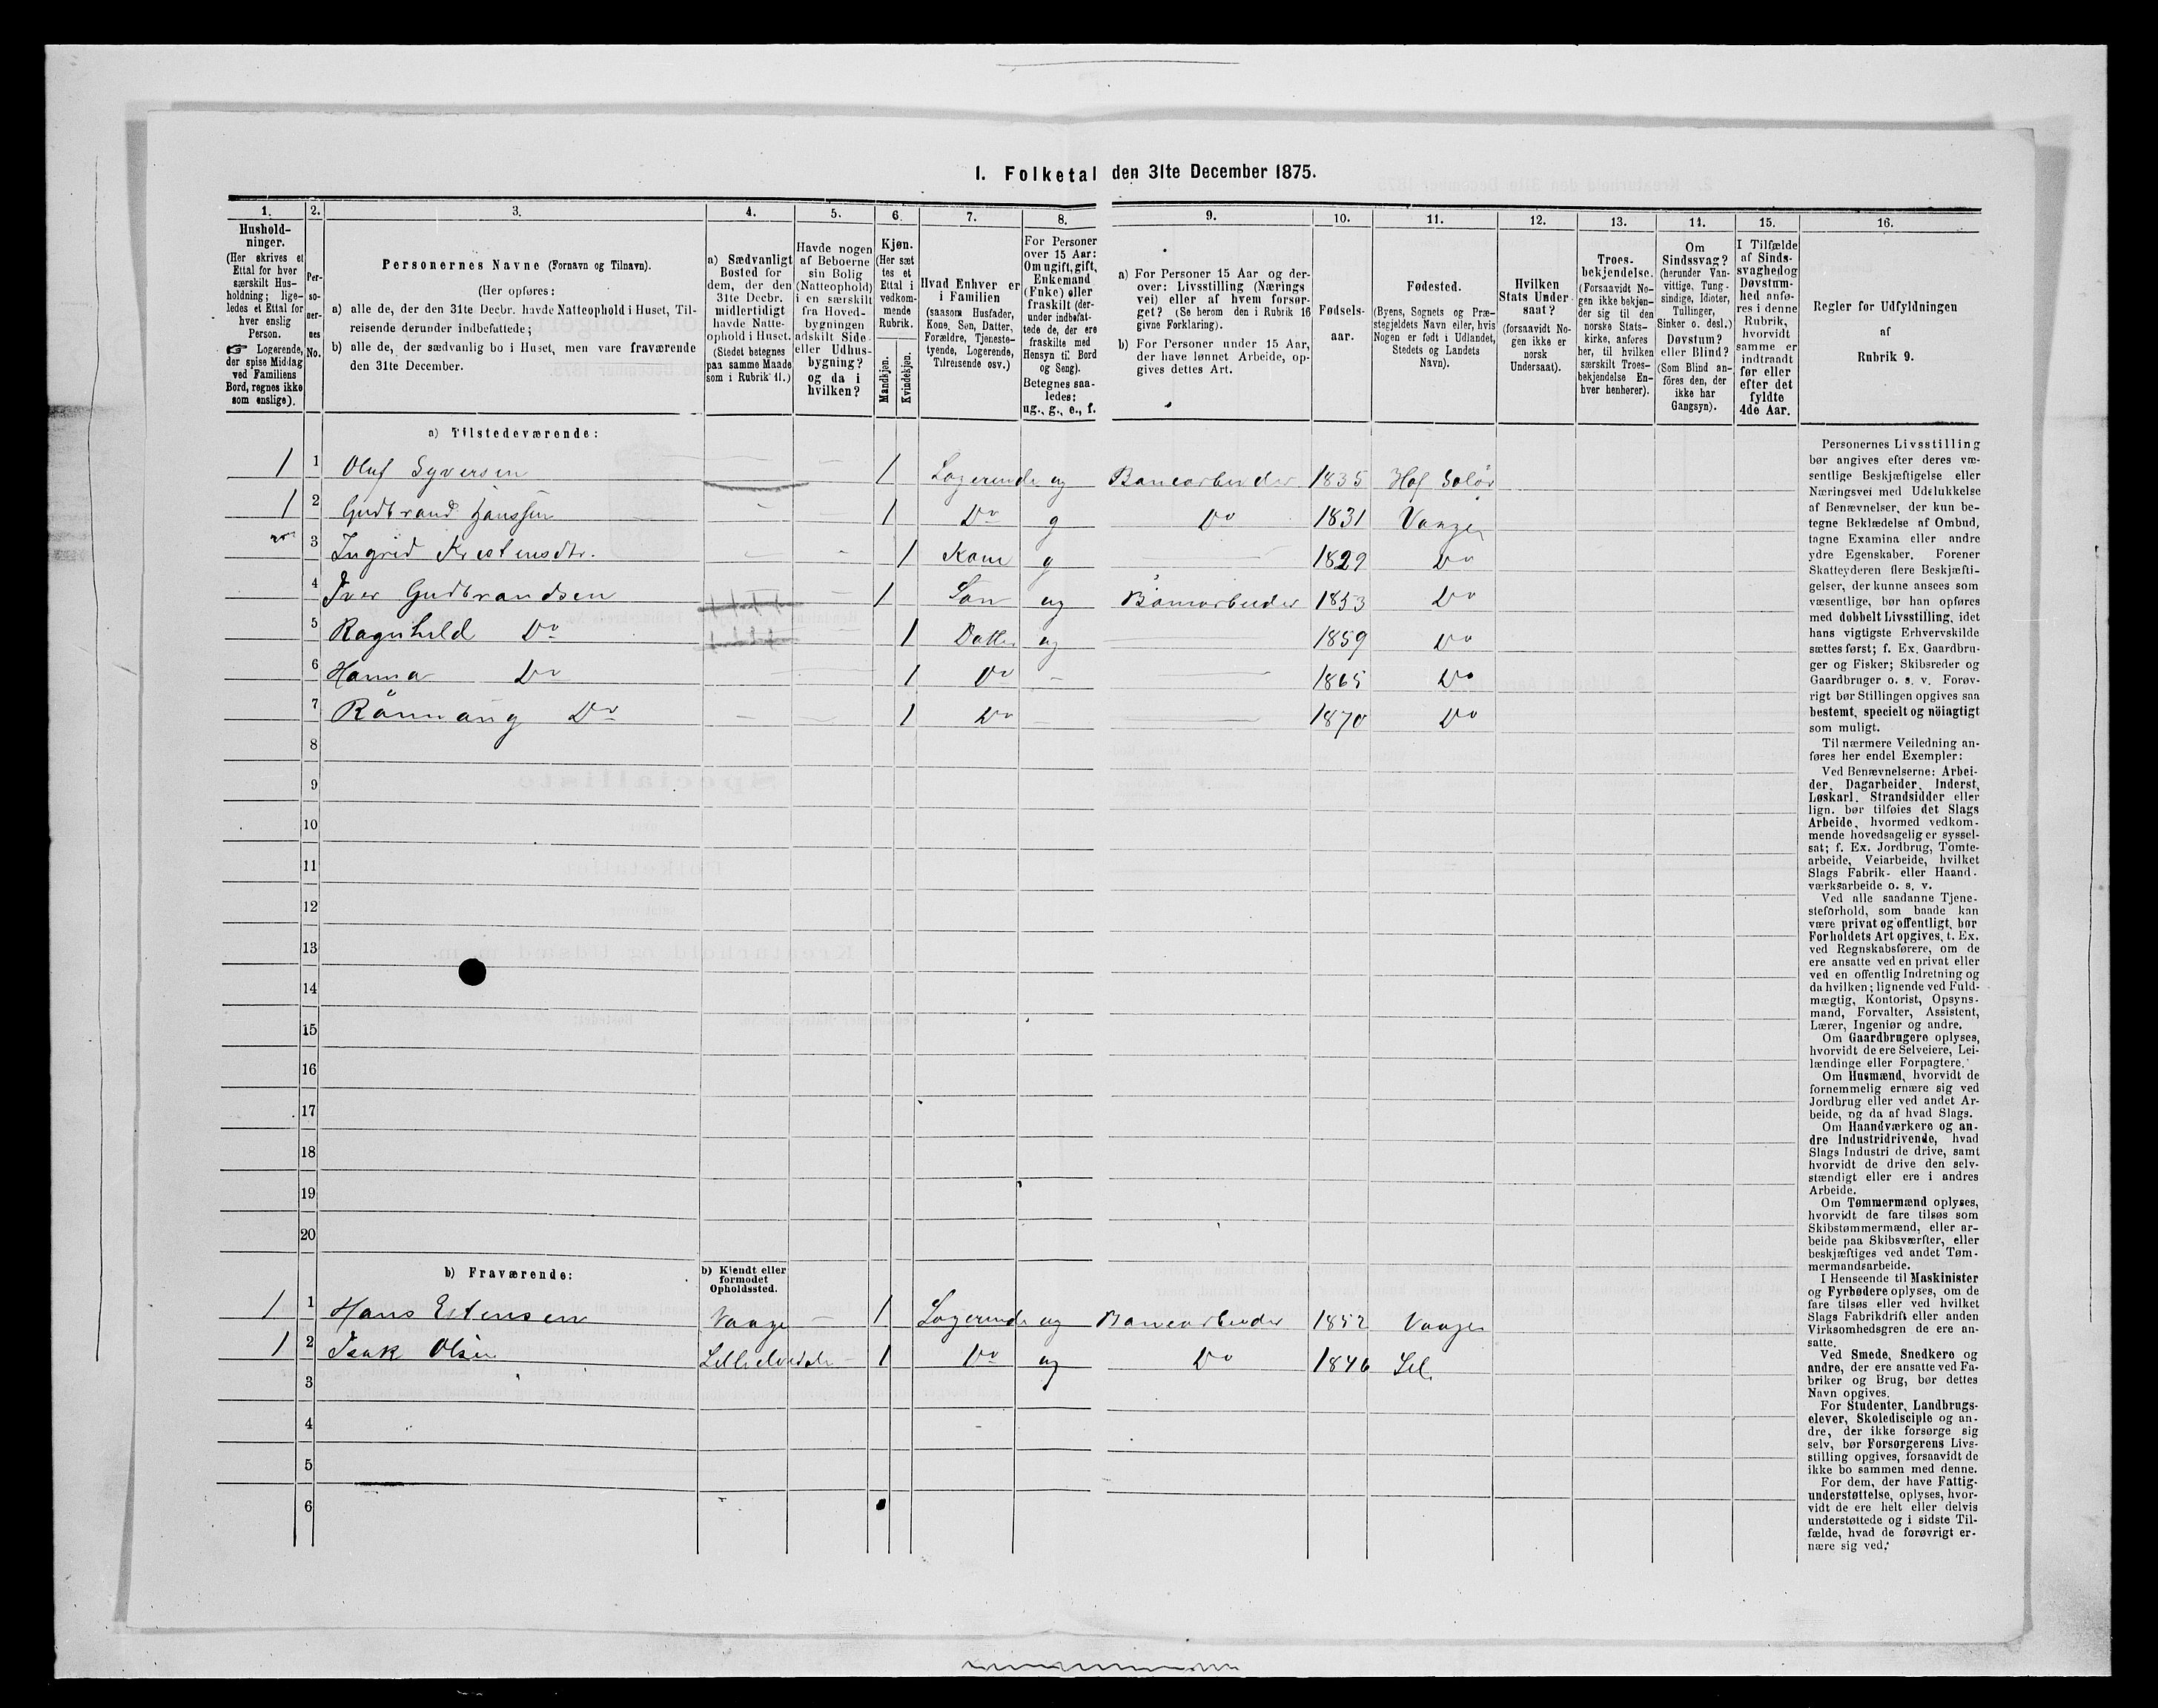 I. Folketal den 31te December 1875.
1. 2. 3. 4. 5. 6. 7. 8. 9. 10. 11. 12. 13. 14. 15. 16.
Hushold-
ninger.
(Her skrives et
Ettal for hver
særskilt Hus-
holdning; lige-
ledes et Ettal for
hver enslig
Person.
☞ Logerende,
der spise Middag
ved Familiens
Bord, regnes ikke
som enslige).
Per-
so-
ner-
nes
No.
Personernes Navne (Fornavn og Tilnavn).
(Her opføres:
a) alle de, der den 31te Decbr. havde Natteophold i Huset, Til-
reisende derunder indbefattede;
b) alle de, der sædvanlig bo i Huset, men vare fraværende
den 31te December.
a) Sædvanligt
Bosted for
dem, der den
31te Decbr.
midlertidigt
havde Natte-
ophold i Huset.
(Stedet betegnes
paa samme Maade
som i Rubrik 11.)
Havde nogen
af Beboerne
sin Bolig
(Natteophold)
i en særskilt
fra Hoved-
bygningen
adskilt Side-
eller Udhus-
bygning?
og da i
hvilken?
Kjøn.
(Her sæt
tes et
Ettal i
vedkom-
mende
Rubrik.
Mandkjøn.
Kvindekjøn.
Hvad Enhver er
i Familien
(saasom Husfader,
Kone, Søn, Datter,
Forældre, Tjeneste-
tyende, Logerende,
Tilreisende osv.)
For Personer
over 15 Aar:
Om ugift, gift,
Enkemand
(Enke) eller
fraskilt (der-
under indbefat-
tede de, der ere
fraskilte med
Hensyn til Bord
og Seng).
Betegnes saa-
ledes:
ug., g., e., f.
a) For Personer 15 Aar og der-
over: Livsstilling (Nærings
vei) eller af hvem forsør-
get? (Se herom den i Rubrik 16
givne Forklaring).
b) For Personer under 15 Aar,
der have lønnet Arbeide, op-
gives dettes Art.
Fødsels-
aar.
Fødested.
(Byens, Sognets og Præ-
stegjeldets Navn eller, hvis
Nogen er født i Udlandet,
Stedets og Landets
Navn).
Hvilken
Stats Under-
saat?
(forsaavidt No-
gen ikke er
norsk
Undersaat).
Troes-
bekjendelse.
(Forsaavidt No-
gen ikke bekjen-
der sig til den
norske Stats-
kirke, anføres
her, til hvilken
særskilt Troes-
bekjendelse En-
hver henhører).
Om
Sindssvag?
(herunder Van-
vittige, Tung-
sindige, Idioter,
Tullinger,
Sinker o. desl.)
Døvstum?
eller Blind?
(Som Blind an-
føres den, der
ikke har
Gangsyn).
I Tilfælde
af Sinds-
svaghed og
Døvstum-
hed anfø-
res i denne
Rubrik,
hvorvidt
samme er
indtraadt
før eller
efter det
fyldte
4de Aar.
Regler for Udfyldningen
af
Rubrik 9.
a) Tilstedeværende:
1 1 Oluf Syversen 1 Logerende ug Banearbeider 1835 Hof Solør
1 2 Gudbrand Hanssen 1 Do g Do 1831 Vange
3 Ingrid Kristensdtr. 1 Kone g 1829 Do
4 Iver Gudbrandsen 1 Søn ug Banearbeider 1853 Do
5 Ragnhild Do 1 Datter ug 1859 Do
6 Hanna Do 1 Do 1865 Do
7 Rönnaug Do 1 Do 1870 Do
8
9
10
11
12
13
14
15
16
17
18
19
20
b) Fraværende:
b) Kjendt eller
formodet
Opholdssted.
1 1 Hans Estensen Vange 1 Logerende ug Banearbeider 1852 Vange
1 2 Isak Olsen Lilleelvedale 1 Do ug Do 1846 Sel
3
4
5
6
Personernes Livsstilling
bør angives efter deres væ-
sentlige Beskjæftigelse eller
Næringsvei med Udelukkelse
af Benævnelser, der kun be-
tegne Beklædelse af Ombud,
tagne Examina eller andre
ydre Egenskaber. Forener
Skatteyderen flere Beskjæfti-
gelser, der kunne ansees som
væsentlige, bør han opføres
med dobbelt Livsstilling, idet
hans vigtigste Erhvervskilde
sættes først; f. Ex. Gaardbru-
ger og Fisker; Skibsreder og
Gaardbruger o. s. v. Forøv-
rigt bør Stillingen opgives saa
bestemt, specielt og nöiagtigt
som muligt.
Til nærmere Veiledning an-
føres her endel Exempler:
Ved Benævnelserne: Arbei-
der, Dagarbeider, Inderst,
Løskarl, Strandsidder eller
lign. bør tilføies det Slags
Arbeide, hvormed vedkom-
mende hovedsagelig er syssel-
sat; f. Ex. Jordbrug, Tomte-
arbeide, Veiarbeide, hvilket
Slags Fabrik- eller Haand-
værksarbeide o. s. v.
Ved alle saadanne Tjene-
steforhold, som baade kan
være privat og offentligt, bør
Forholdets Art opgives, t. Ex.
ved Regnskabsførere, om de
ere ansatte ved en privat eller
ved en offentlig Indretning og
da hvilken; lignende ved Fuld-
mægtig, Kontorist, Opsyns-
mand, Forvalter, Assistent,
Lærer, Ingeniør og andre.
Om Gaardbrugere oplyses,
hvorvidt de ere Selveiere, Lei-
lændinge eller Forpagtere.
Om Husmænd, hvorvidt de
fornemmelig ernære sig ved
Jordbrug eller ved andet Ar-
beide, og da af hvad Slags.
Om Haandværkere og an-
dre Industridrivende, hvad
Slags Industri de drive, samt
hvorvidt de drive den selv-
stændigt eller ere i andres
Arbeide.
Om Tømmermænd oplyses,
hvorvidt de fare tilsøs som
Skibstømmermænd, eller ar-
beide paa Skibsværfter, eller
beskjæftiges ved andet Tøm-
mermandsarbeide.
I Henseende til Maskinister
og Fyrbødere oplyses, om de
fare tilsøs eller ved hvilket
Slags Fabrikdrift eller anden
Virksomhedsgren de ere an-
satte.
Ved Smede, Snedkere og
andre, der ere ansatte ved Fa-
briker og Brug, bør dettes
Navn opgives.
For Studenter, Landbrugs-
elever, Skoledisciple og an-
dre, der ikke forsørge sig
selv, bør Forsørgerens Livs-
stilling opgives, forsaavidt de
ikke bo sammen med denne.
For dem, der have Fattig-
understøttelse, oplyses, hvor-
vidt de ere helt eller delvis
understøttede og i sidste Til-
fælde, hvad de forøvrigt er-
nære sig ved.